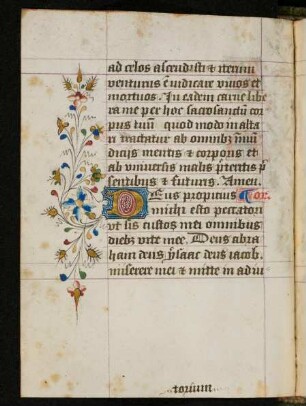 ad celos ascendisti et iterum
venturus e iudicare viuos et
mortuos. In eadem carne libe
ra me per hoc sacrosanctu cor
pus tuu quod modo in alta
ri tractatur ab omnibz inmu
dicijs mentis et corporis et
ab vniuersis malis pretitis p
sentibus et futuris. Amen.
Deus propicius Oro.
michi esto peccatori
vt sis custos mei omnibus
diebz vite mee. Deus abra
ham deus ysaac deus iacob.
miserere mei et mitte in adiu
torium